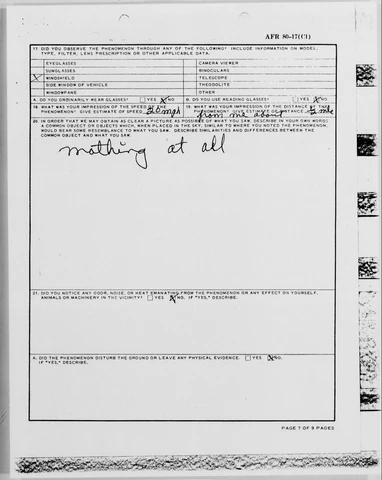 AFR 80-17(C1)
17. DID YOU OBSERVE THE PHENOMENON THROUGH ANY OF THE FOLLOWING? INCLUDE INFORMATION ON MODEL,
TYPE, FILTER, LENS PRESCRIPTION OR OTHER APPLICABLE DATA.
EYEGLASSES CAMERA VIEWER
SUNGLASSES BINOCULARS
X WINDSHIELD TELESCOPE
SIDE WINDOW OF VEHICLE THEODOLITE
WINDOWPANE OTHER
A. DO YOU ORDINARILY WEAR GLASSES? YES X NO B. DO YOU USE READING GLASSES? YES X NO
18. WHAT WAS YOUR IMPRESSION OF THE SPEED OF THE 19. WHAT WAS YOUR IMPRESSION OF THE DISTANCE OF THE
PHENOMENON? GIVE ESTIMATE OF SPEED PHENOMENON? GIVE ESTIMATE OF DISTANCE from me about
20. IN ORDER THAT WE MAY OBTAIN AS CLEAR A PICTURE AS POSSIBLE OF WHAT YOU SAW, DESCRIBE IN YOUR OWN WORDS
A COMMON OBJECT OR OBJECTS WHICH, WHEN PLACED IN THE SKY, SIMILAR TO WHERE YOU NOTED THE PHENOMENON,
WOULD BEAR SOME RESEMBLANCE TO WHAT YOU SAW. DESCRIBE SIMILARITIES AND DIFFERENCES BETWEEN THE
COMMON OBJECT AND WHAT YOU SAW.
nothing at all
21. DID YOU NOTICE ANY ODOR, NOISE, OR HEAT EMANATING FROM THE PHENOMENON OR ANY EFFECT ON YOURSELF,
ANIMALS OR MACHINERY IN THE VICINITY? YES X NO. IF "YES," DESCRIBE.
A. DID THE PHENOMENON DISTURB THE GROUND OR LEAVE ANY PHYSICAL EVIDENCE. YES X NO.
IF "YES," DESCRIBE.
PAGE 7 OF 9 PAGES